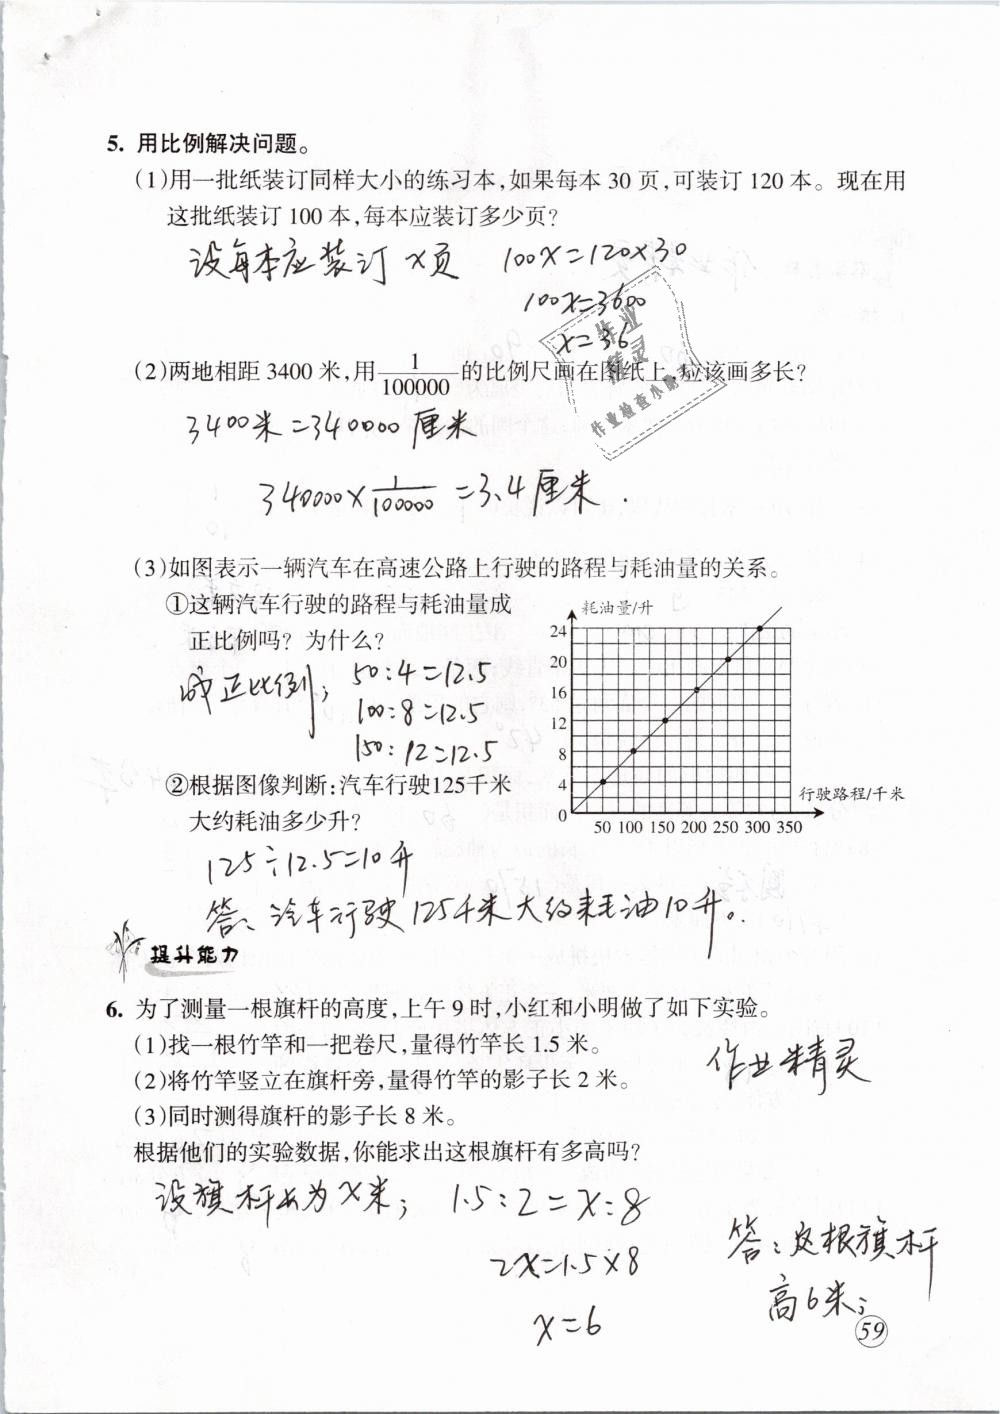 5. 用比例解决问题。
(1)用一批纸装订同样大小的练习本,如果每本 30 页,可装订 120 本。现在用
这批纸装订 100 本,每本应装订多少页?
设每本应装订 x页 100x=120×30
100x=3600
x=36
(2)两地相距 3400 米,用 1/100000 的比例尺画在图纸上,应该画多长?
3400米=340000厘米
340000×1/100000=3.4厘米.
作业
精灵
作业检查小助手
(3)如图表示一辆汽车在高速公路上行驶的路程与耗油量的关系。
①这辆汽车行驶的路程与耗油量成
正比例吗? 为什么?
成正比例; 50:4=12.5
100:8=12.5
150:12=12.5
②根据图像判断:汽车行驶125千米
大约耗油多少升?
耗油量/升
24
20
16
12
8
4
0
50 100 150 200 250 300 350
行驶路程/千米
125÷12.5=10升
答:汽车行驶125千米大约耗油10升。
提升能力
6. 为了测量一根旗杆的高度,上午 9 时,小红和小明做了如下实验。
(1)找一根竹竿和一把卷尺,量得竹竿长 1.5 米。
(2)将竹竿竖立在旗杆旁,量得竹竿的影子长 2 米。
(3)同时测得旗杆的影子长 8 米。
根据他们的实验数据,你能求出这根旗杆有多高吗?
作业精灵
设旗杆长为x米; 1.5:2=x:8
2x=1.5×8
x=6
答:这根旗杆
高6米;
59